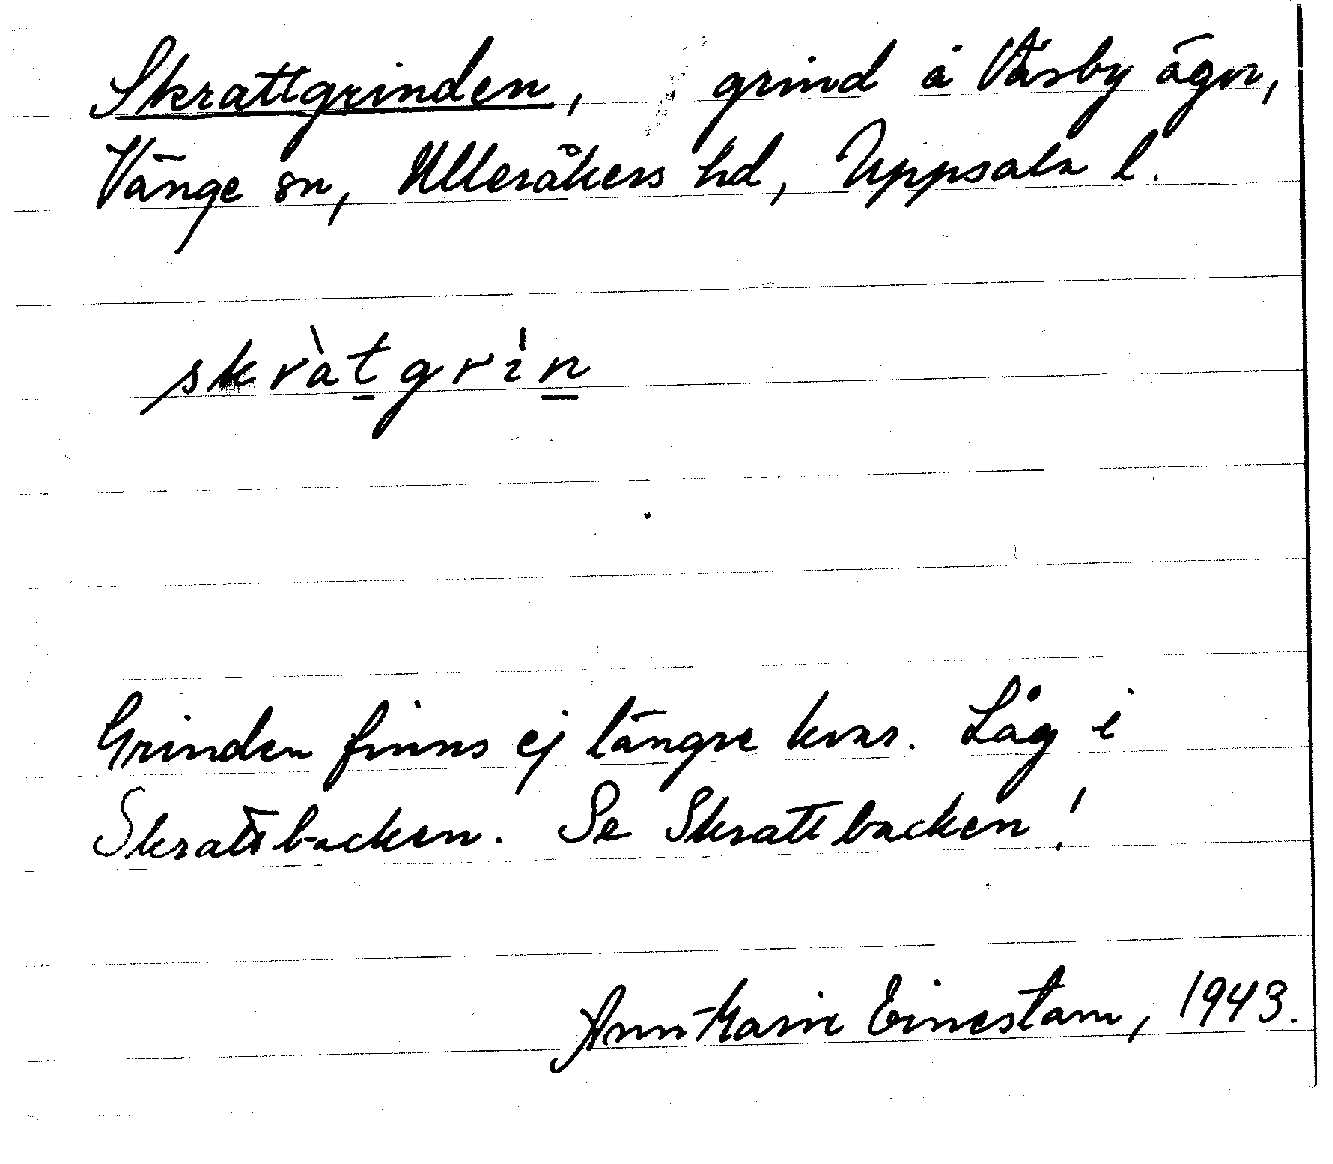 Skrattgrinden, grind å Väsby ägor,
Vänge sn, Ulleråkers hd, Uppsala l.
skràt̲grìn̲
Grinden finns ej längre kvar. Låg i
Skrattbacken. Se Skrattbacken!
Ann-Marie Einestam, 1943.